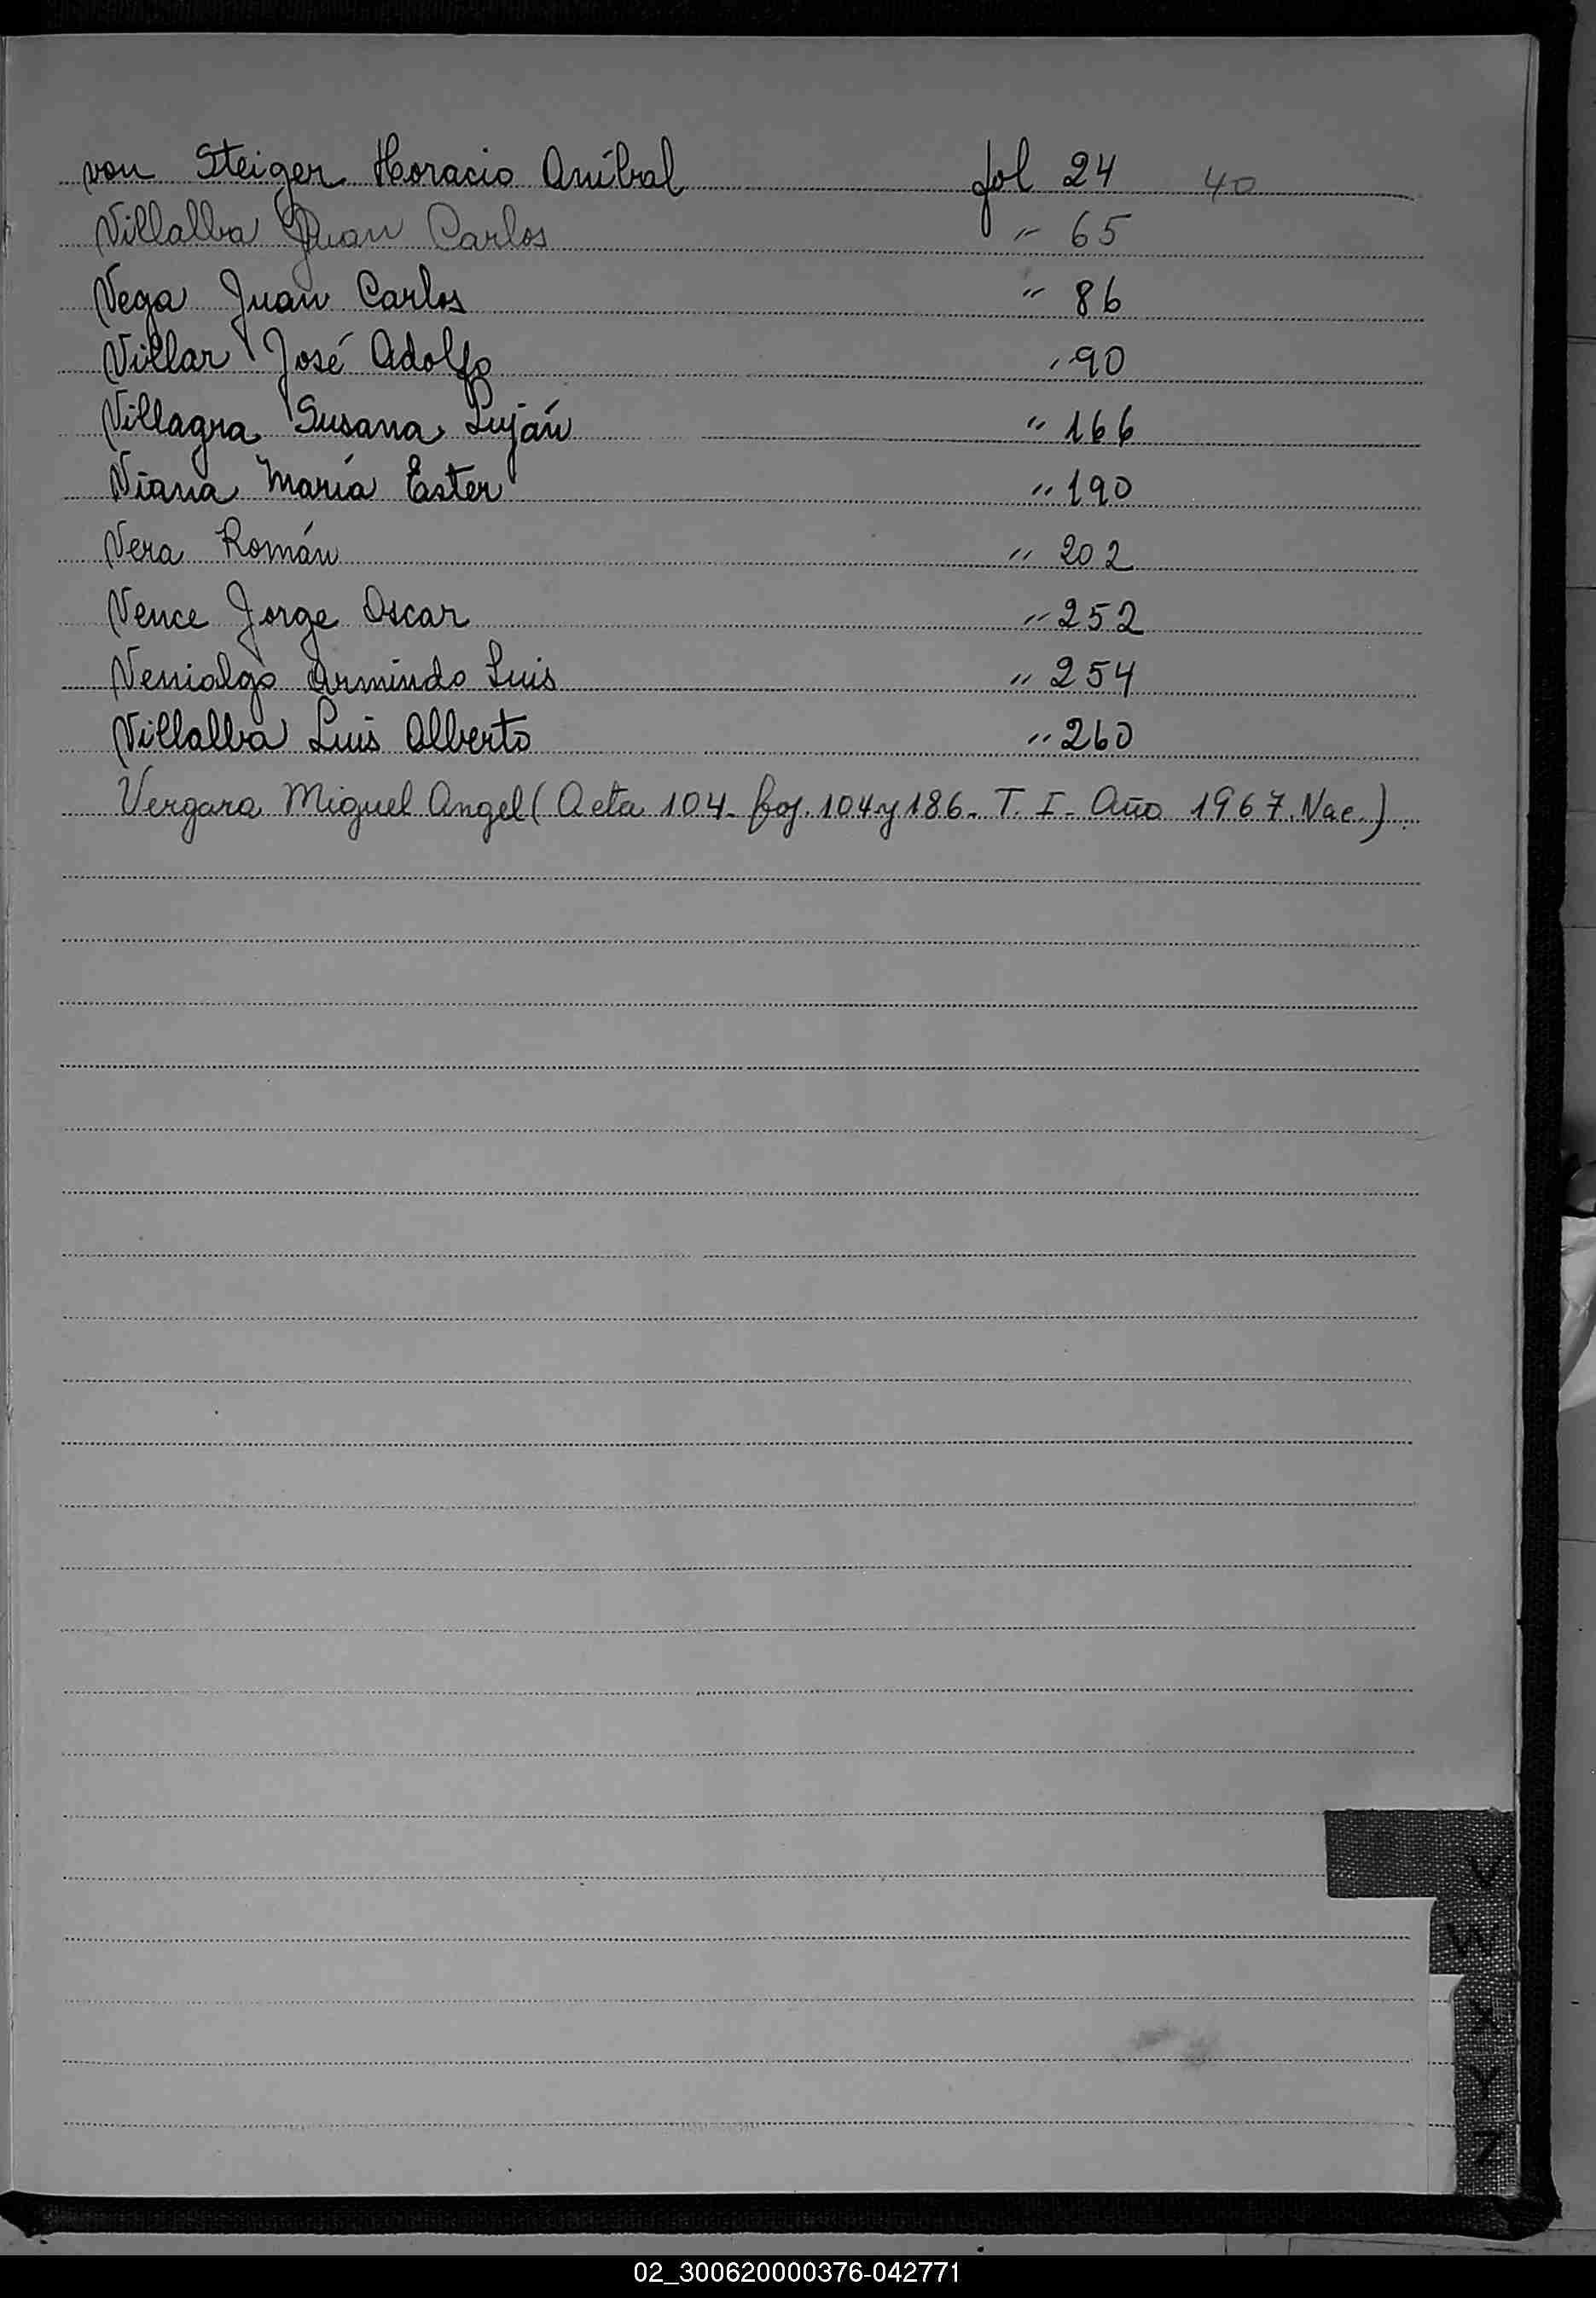 von Steiger Horacio Aníbal fol 24 40
Villalba Juan Carlos " 65
Vega Juan Carlos " 86
Villar José Adolfo " 90
Villagra Susana Luján " 166
Viana María Ester " 190
Vera Román " 202
Vence Jorge Oscar " 252
Venialgo Armindo Luis " 254
Villalba Luis Alberto " 260
Vergara Miguel Angel (Acta 104- foj. 104 y 186- T. I- Año 1967. Nac.)
V
W
X
Y
Z
02_300620000376-042771